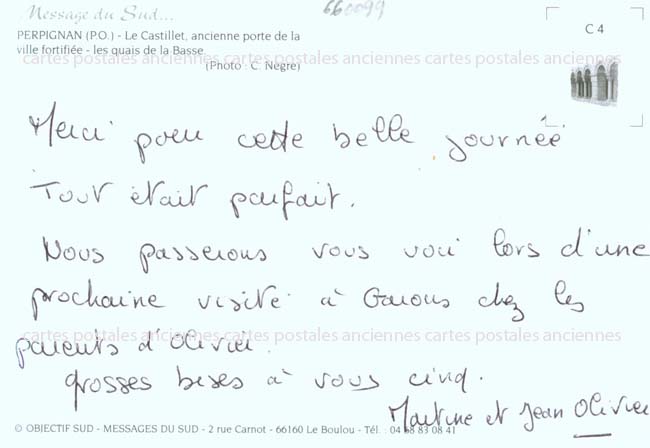 Message du Sud...
660099
C 4
PERPIGNAN (P.O.) - Le Castillet, ancienne porte de la
ville fortifiée - les quais de la Basse.
cartes postales anciennes cartes postales anciennes cartes postales anciennes
(Photo : C. Nègre)
Merci pour cette belle journée
Tout était parfait.
Nous passerons vous voir lors d'une
prochaine visite à Garons chez les
cartes postales anciennes cartes postales anciennes cartes postales anciennes
parents d'Olivier.
grosses bises à vous cinq.
Martine et Jean Olivier
© OBJECTIF SUD - MESSAGES DU SUD - 2 rue Carnot - 66160 Le Boulou - Tél. : 04 68 83 08 41